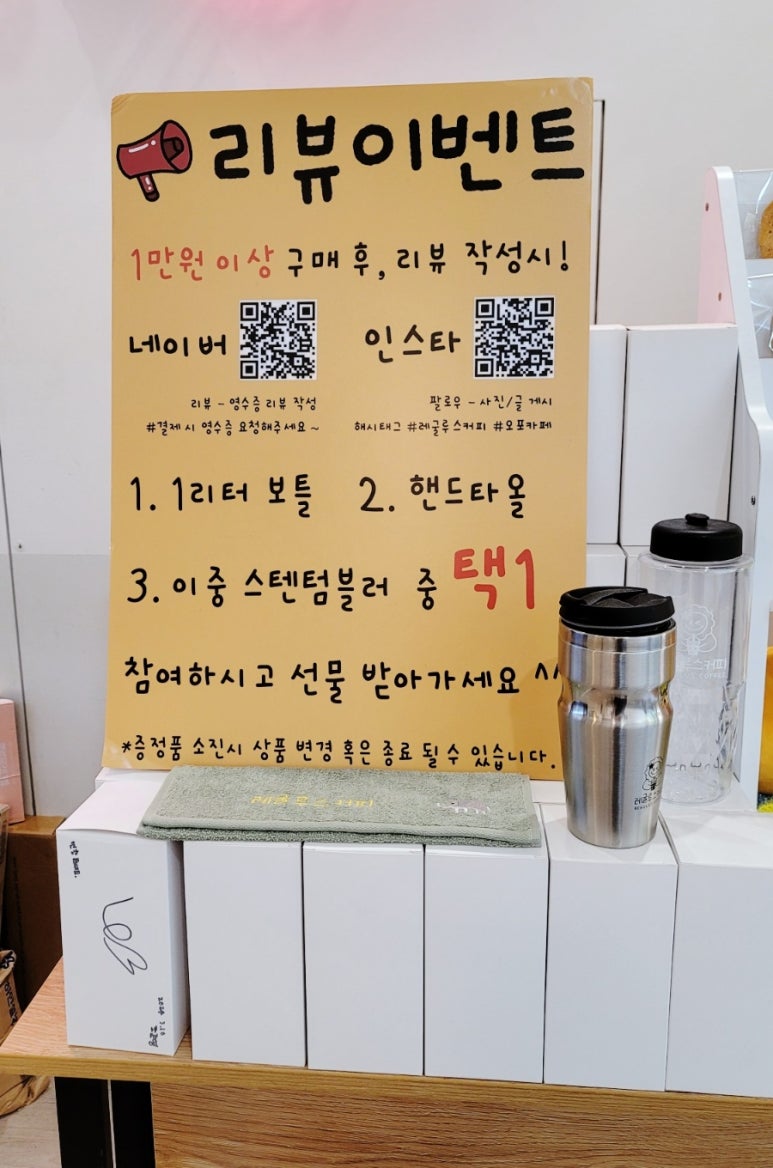 리뷰이벤트
1만원 이상 구매 후, 리뷰 작성시!
네이버 인스타
리뷰 - 영수증 리뷰 작성 팔로우 - 사진/글 게시
#결제 시 영수증 요청해주세요~ 해시태그 #레굴루스커피 #오포카페
1. 1리터 보틀 2. 핸드타올
3. 이중 스텐텀블러 중 택1
참여하시고 선물 받아가세요 ^^
*증정품 소진시 상품 변경 혹은 종료 될 수 있습니다.